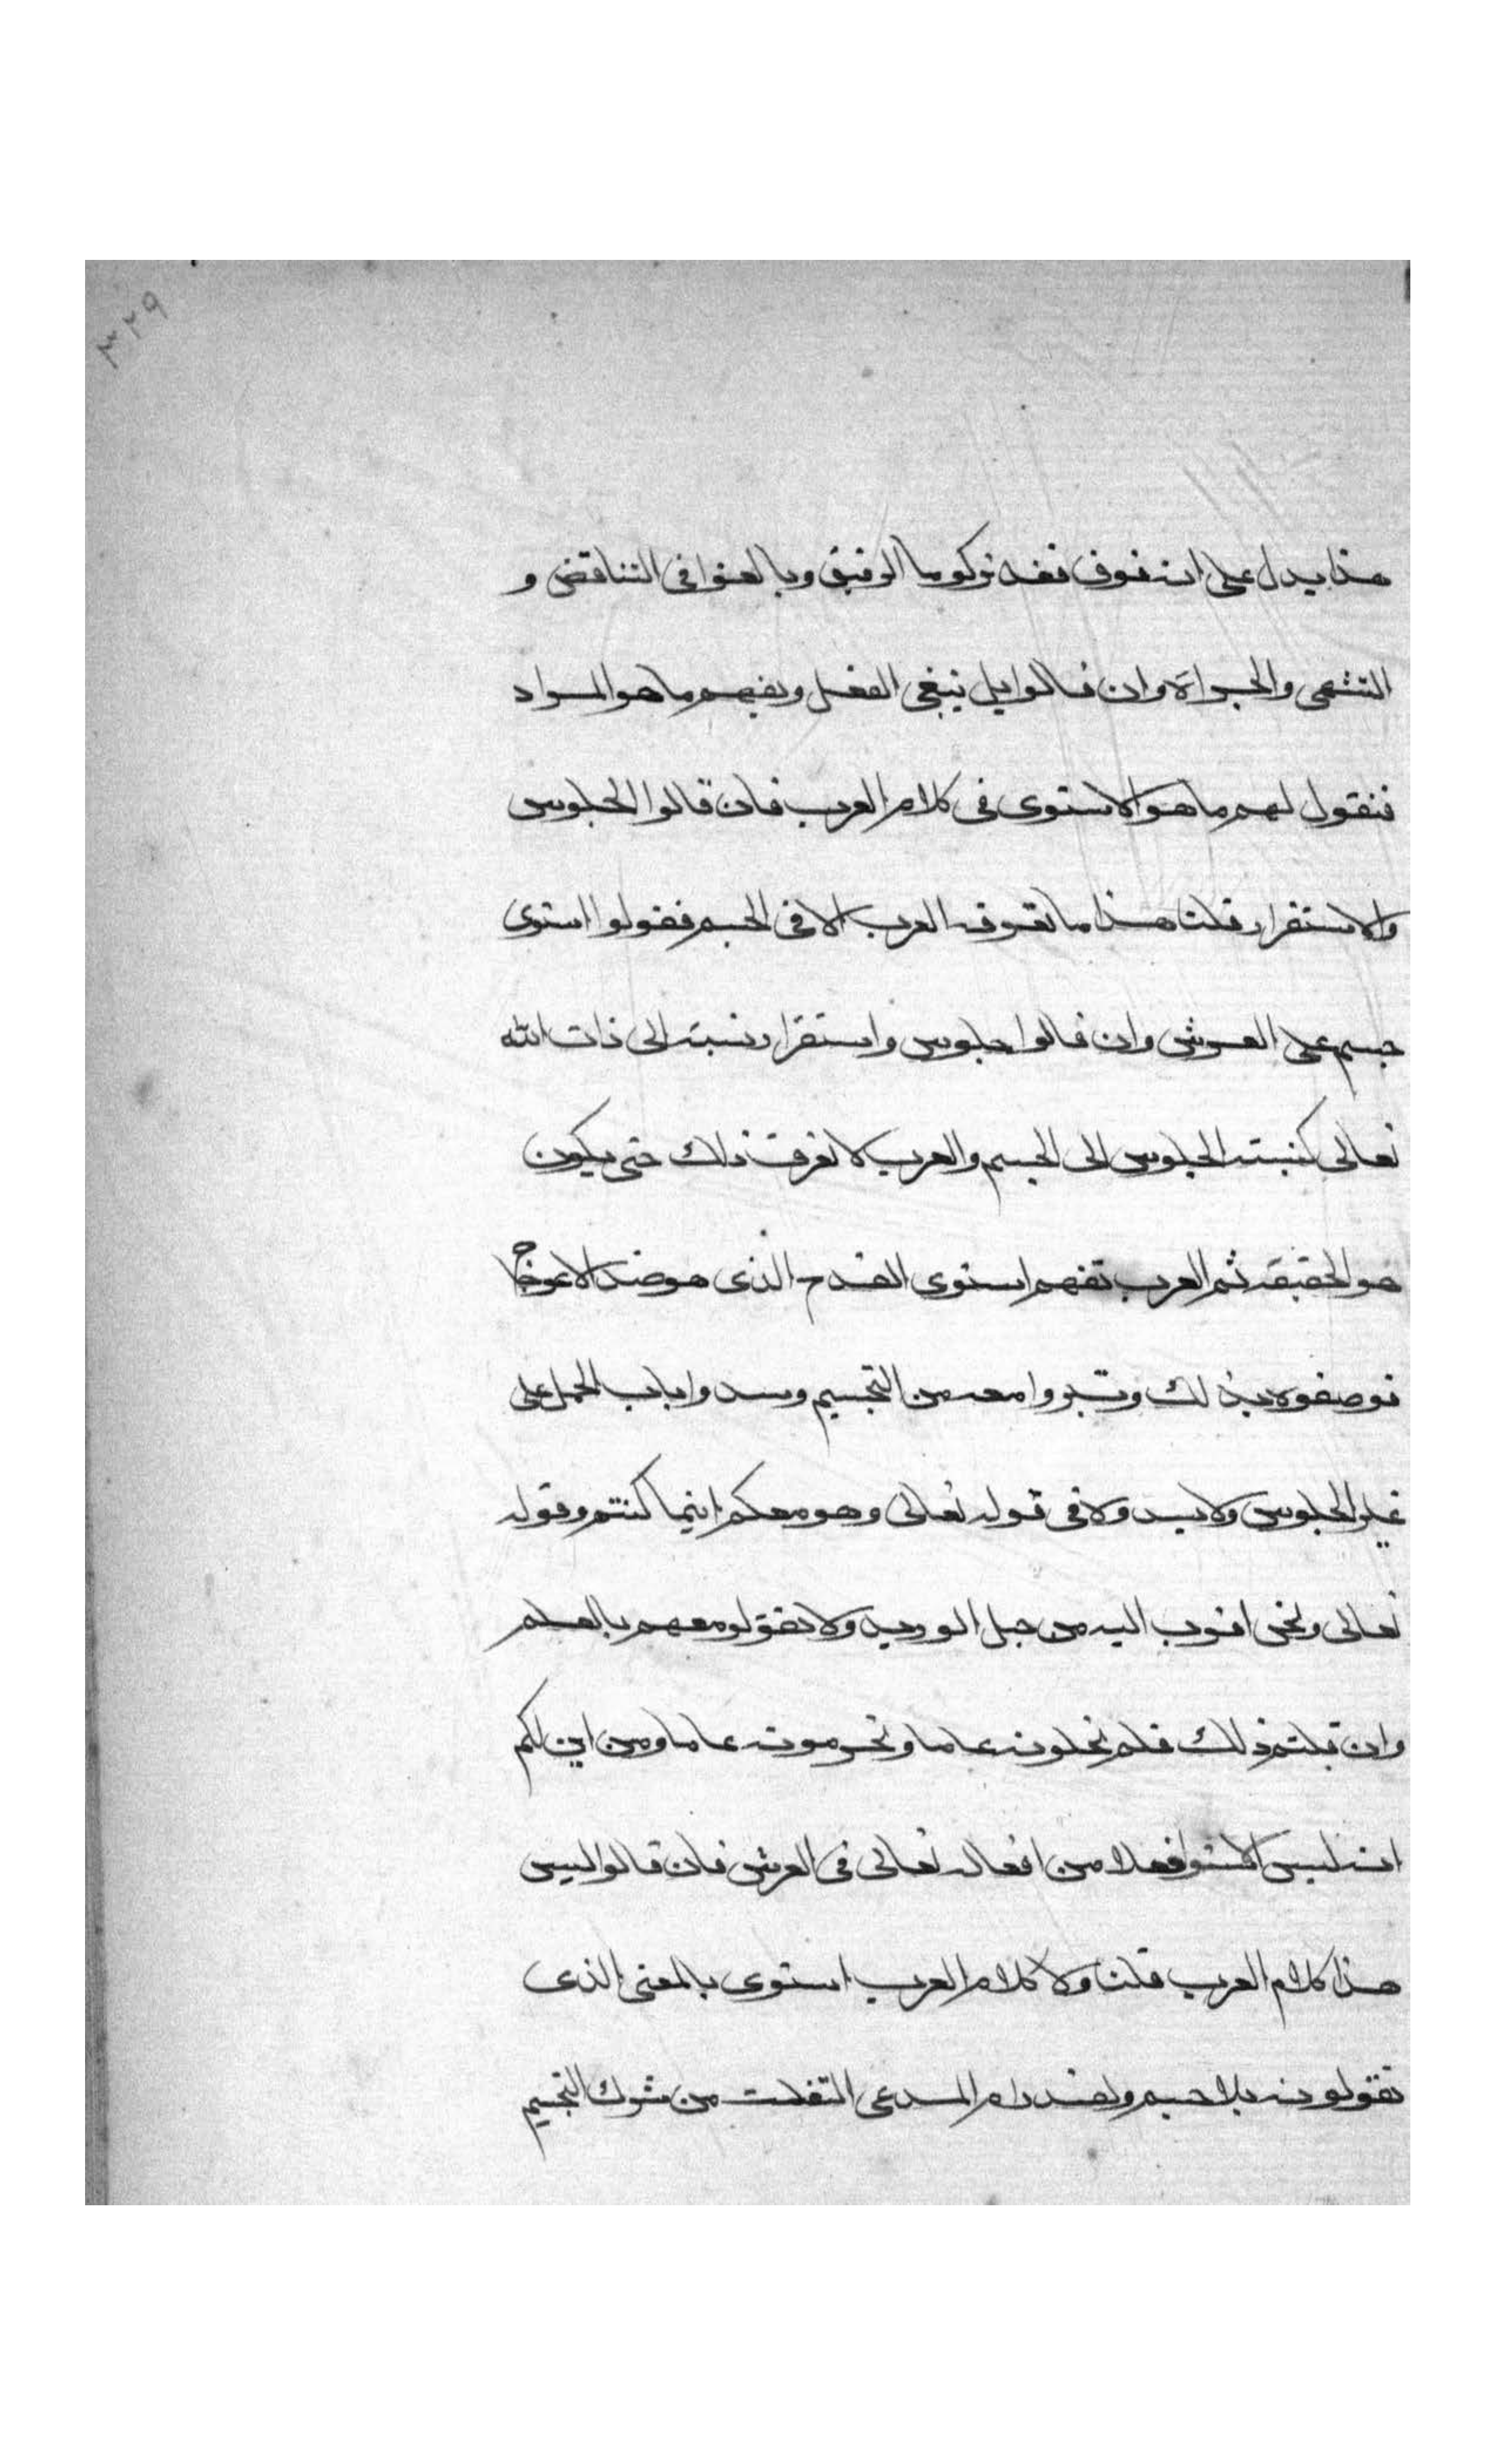 ٣٢٩
هذا يدل على انه فوق فقد تركوها الوفيق وبالغوا في التناقض و
التشهى والجراة وان قالوا بل نبغى العقل ونفهم ما هو المراد
فنقول لهم ما هو الاستوى فى كلام العرب فان قالوا الجلوس
والاستقرار قلنا هذا ما تعرفه العرب الا فى الجسم فقولوا استوى
جسم على العرش وان قالوا جلوس واستقرار نسبته الى ذات الله
تعالى كنسبته الجلوس الى الجسم والعرب لا تعرف ذلك حتى يكون
هو الحقيقه ثم العرب تفهم استوى القدح الذى هو ضد الاعوجاج
فوصفوه بذلك وتبروا معه من التجسيم وسدوا باب الحمل على
غير الجلوس ولا يسدولا فى قوله تعالى وهو معكم اينما كنتم وقوله
تعالى ونحن اقرب اليه من حبل الوريد ولا تقولو معهم بالعلم
وان قلتم ذلك فلم تحلونه عاما وتحرمونه عاما ومن اين لكم
انه ليس الاستوا فعلا من افعاله تعالى فى العرش فان قالوا ليس
هذا كلام العرب قلنا ولا كلام العرب استوى بالمعنى الذى
تقولونه بلا جسم ولقد رام المدعى التفلت من شرك التجسيم